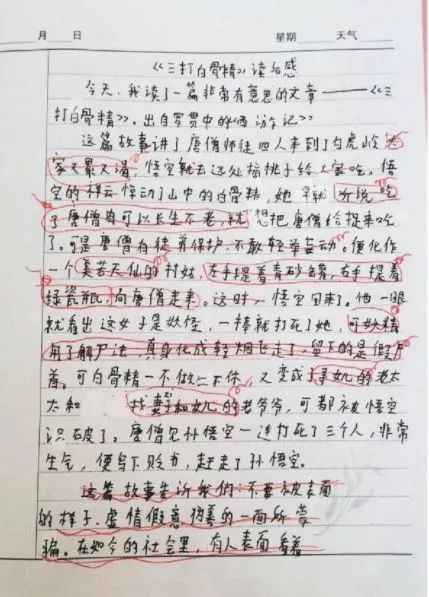 月 日 星期 天气
《三打白骨精》读后感
今天,我读了一篇非常有意思的文章——《三
打白骨精》,出自罗贯中的《西游记》
这篇故事讲了唐僧师徒四人来到了白虎岭 大
家又累又渴,悟空就去远处摘桃子给大家吃,悟
空的祥云惊动了山中的白骨精,她早就听说吃
了唐僧肉可以长生不老,就想把唐僧给捉来吃
了。可是唐僧有徒弟保护,不敢轻举妄动。便化作
一个美若天仙的村妓,左手提着青砂罐,右手提着
绿瓷瓶,向唐僧走来。这时,悟空回来了。他一眼
就看出这女子是妖怪,一棒就打死了她,可妖精
用了解尸法,真身化成轻烟飞走了,留下的是假尸
首。可白骨精一不做二不休,又变成了寻女儿的老太
太和 找妻子和女儿的老爷爷,可都被悟空
识破了。唐僧见孙悟空一连打死了三个人,非常
生气,便写下贬书,赶走了孙悟空。
这篇故事告诉我们:不要被表面
的样子、虚情假意伪善的一面所蒙
骗。在如今的社会里,有人表面看着